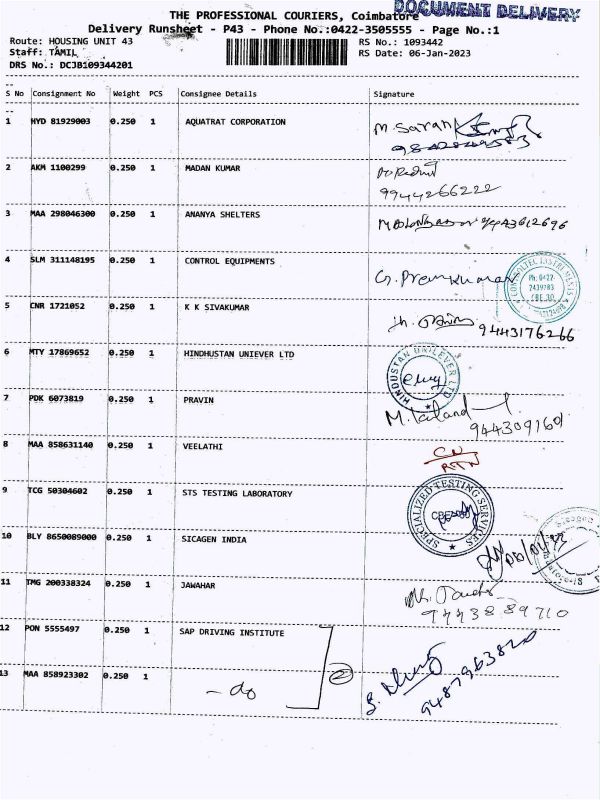 THE PROFESSIONAL COURIERS, Coimbatore
DOCUMENT DELIVERY
Delivery Runsheet - P43 - Phone No.:0422-3505555 - Page No.:1
Route: HOUSING UNIT 43
RS No.: 1093442
Staff: TAMIL
RS Date: 06-Jan-2023
DRS No.: DCJB109344201
S No Consignment No Weight PCS Consignee Details Signature
1 HYD 81929003 0.250 1 AQUATRAT CORPORATION M. Saran
2 AKM 1100299 0.250 1 MADAN KUMAR
9944266222
3 MAA 298046300 0.250 1 ANANYA SHELTERS 9443612696
4 SLM 311148195 0.250 1 CONTROL EQUIPMENTS G. Premkumar
CONTROLTEC INSTRUMENTS
Ph: 0422-
2439783
CBE-30
5 CNR 1721052 0.250 1 K K SIVAKUMAR
9443176266
6 MTY 17869652 0.250 1 HINDHUSTAN UNIEVER LTD
HINDUSTAN UNILEVER LTD
7 PDK 6073819 0.250 1 PRAVIN
944309160
8 MAA 858631140 0.250 1 VEELATHI
CN
RTN
9 TCG 50304602 0.250 1 STS TESTING LABORATORY
SPECIALIZED TESTING SERVICES
10 BLY 8650089000 0.250 1 SICAGEN INDIA
11 TMG 200338324 0.250 1 JAWAHAR
9443889710
12 PON 5555497 0.250 1 SAP DRIVING INSTITUTE
2
13 MAA 858923302 0.250 1 - do
9487963820